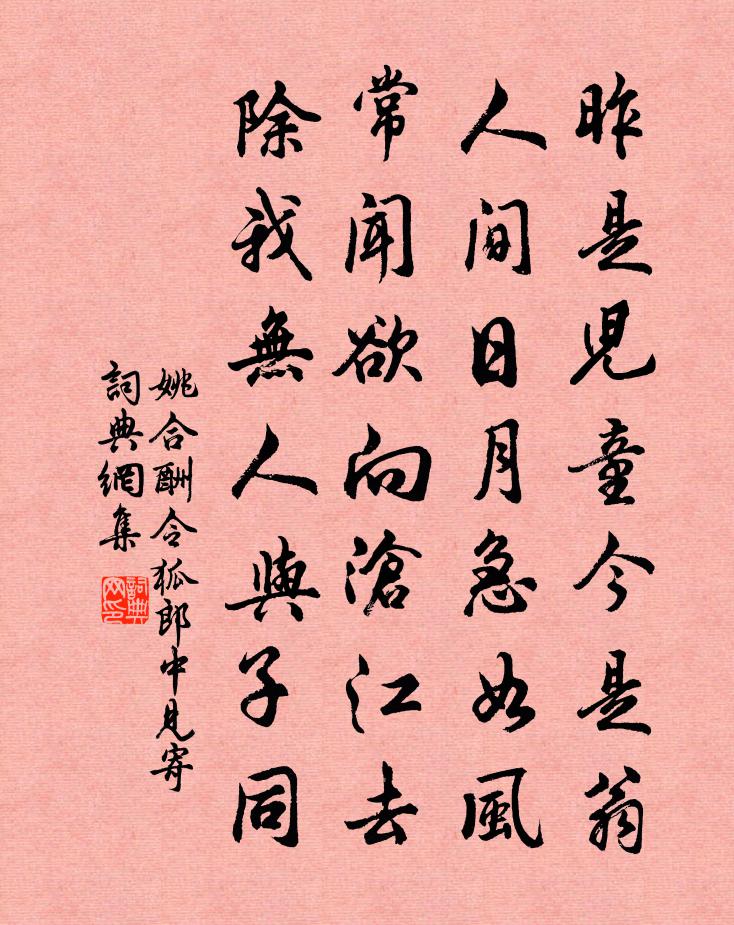 昨是兒童今是翁
人間日月急如風
常聞欲向滄江去
除我無人與子同
姚合酬令狐郎中見寄
詞典網集
詞典網印